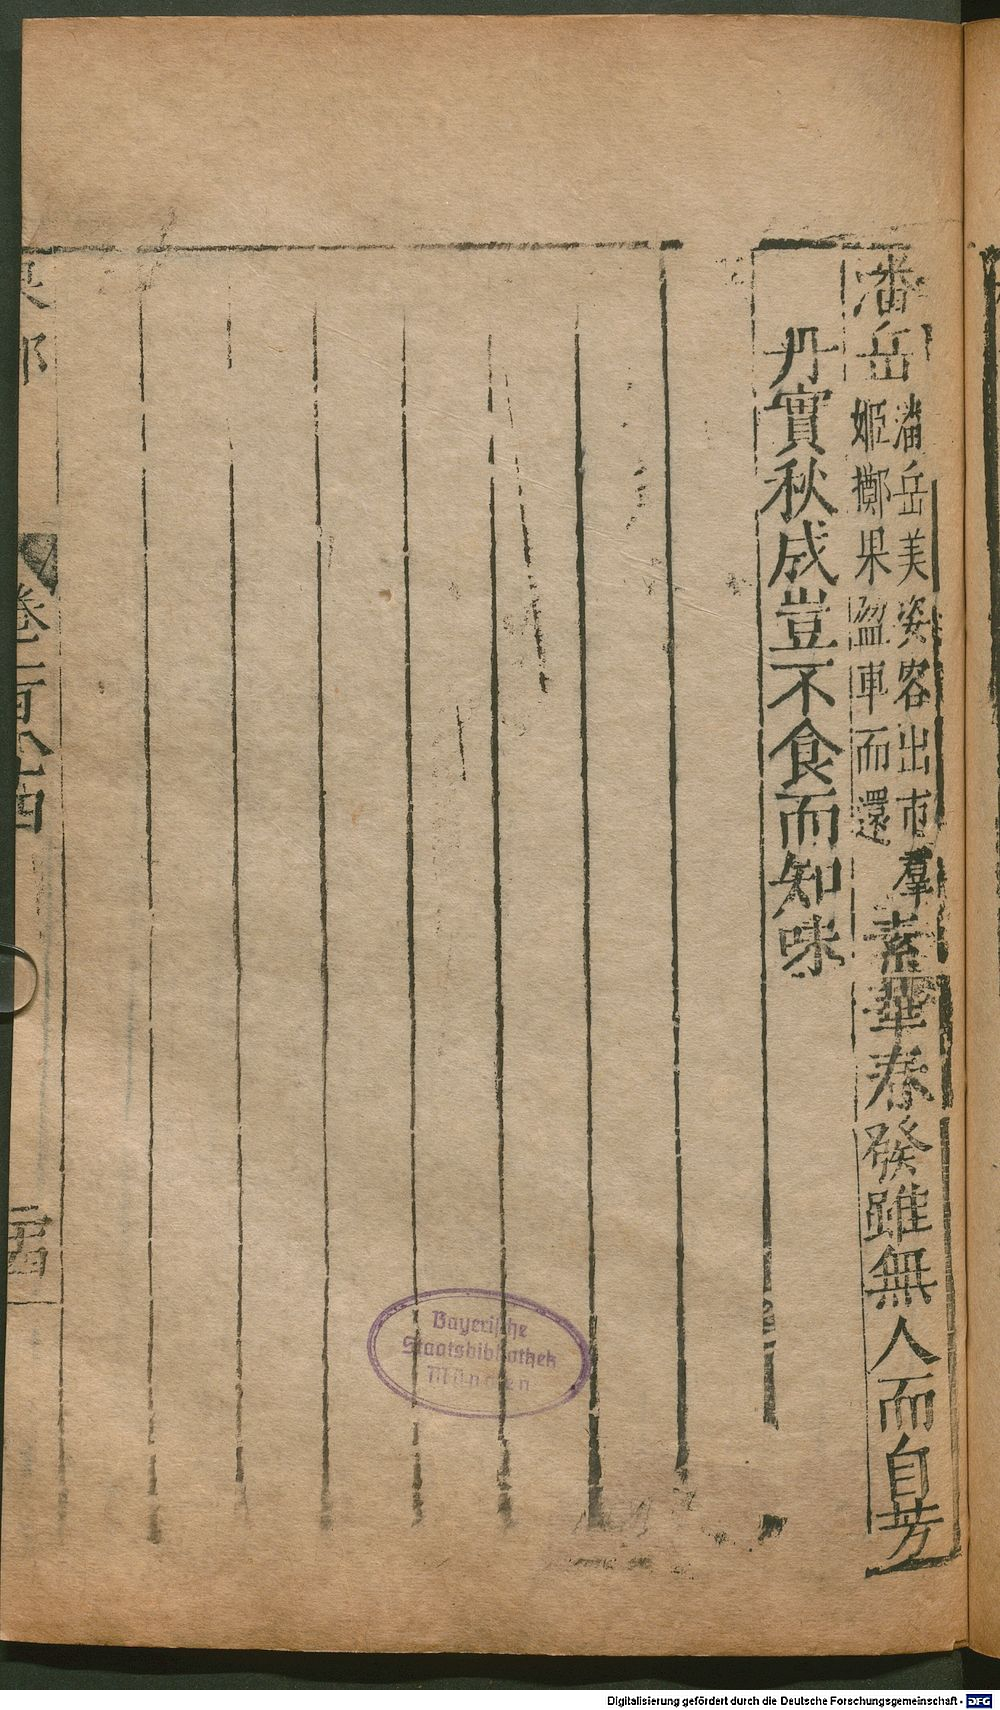 潘岳潘岳美姿容出市羣姬擲果盈車而還素華春發雖無人而自芳
丹實秋成豈不食而知味
果部
卷二百八四
Bayerische
Staatsbibliothek
München
Digitalisierung gefördert durch die Deutsche Forschungsgemeinschaft - DFG